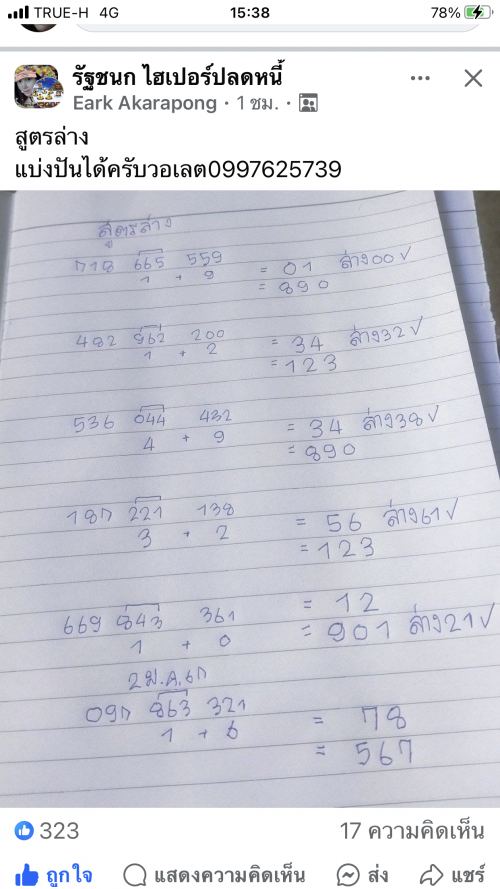 TRUE-H 4G 15:38 78%
รัฐชนก ไฮเปอร์ปลดหนี้
Eark Akarapong · 1 ชม. ·
สูตรล่าง
แบ่งปันได้ครับวอเลต0997625739
สูตรล่าง
718 665 559 = 01 ล่าง00✓
1 + 9 = 890
482 962 200 = 34 ล่าง32✓
1 + 2 = 123
536 044 432 = 34 ล่าง38✓
4 + 9 = 890
187 221 138 = 56 ล่าง61✓
3 + 2 = 123
669 843 361 = 12
1 + 0 = 901 ล่าง21✓
2ม.ค.67
097 863 321 = 78
1 + 6 = 567
323 17 ความคิดเห็น
ถูกใจ แสดงความคิดเห็น ส่ง แชร์